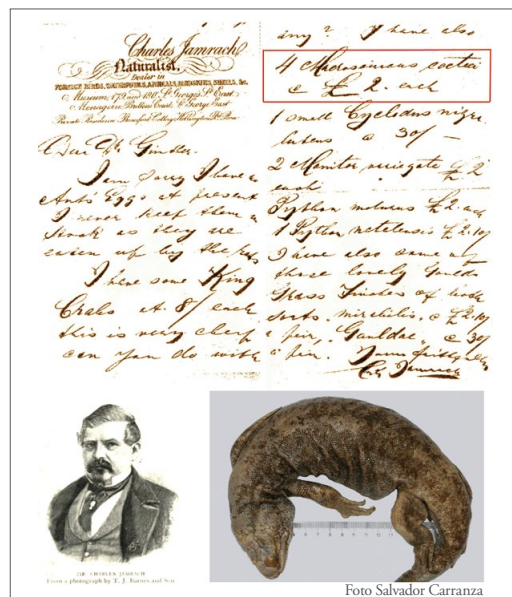 Charles Jamrach
Naturalist.
Dealer in
FOREIGN BIRDS, WATERFOWLS, ANIMALS, MONKEYS, SHELLS, &c.
Museum, 179 and 180, St. George's St. East
Menagerie, Bettons Court, St. George's East
Private Residence,
Dear Mr. Günther
I am sorry I have no
Ants Eggs at present
I never keep them in
Stock as they are
eaten up by the
I have some King
Crabs at 8/ each
this is very cheap
can you do with
any? I have also
4 coctei
@ £2. each
1 small Cyclodus nigro
luteus @ 30/-
2 Monitor variegata £2
each
Python molurus £2. each
1 Python £2.10/
I have also some of
those lovely
Grass Finches of
sorts. mirabilis, @ £2.10/
a pair, Gouldae, @ 30/
a pair. Yours faithfully
Ch. Jamrach
MR. CHARLES JAMRACH
From a photograph by T. J. Barnes and Son
6 7 8 9 10 11 12
Foto Salvador Carranza